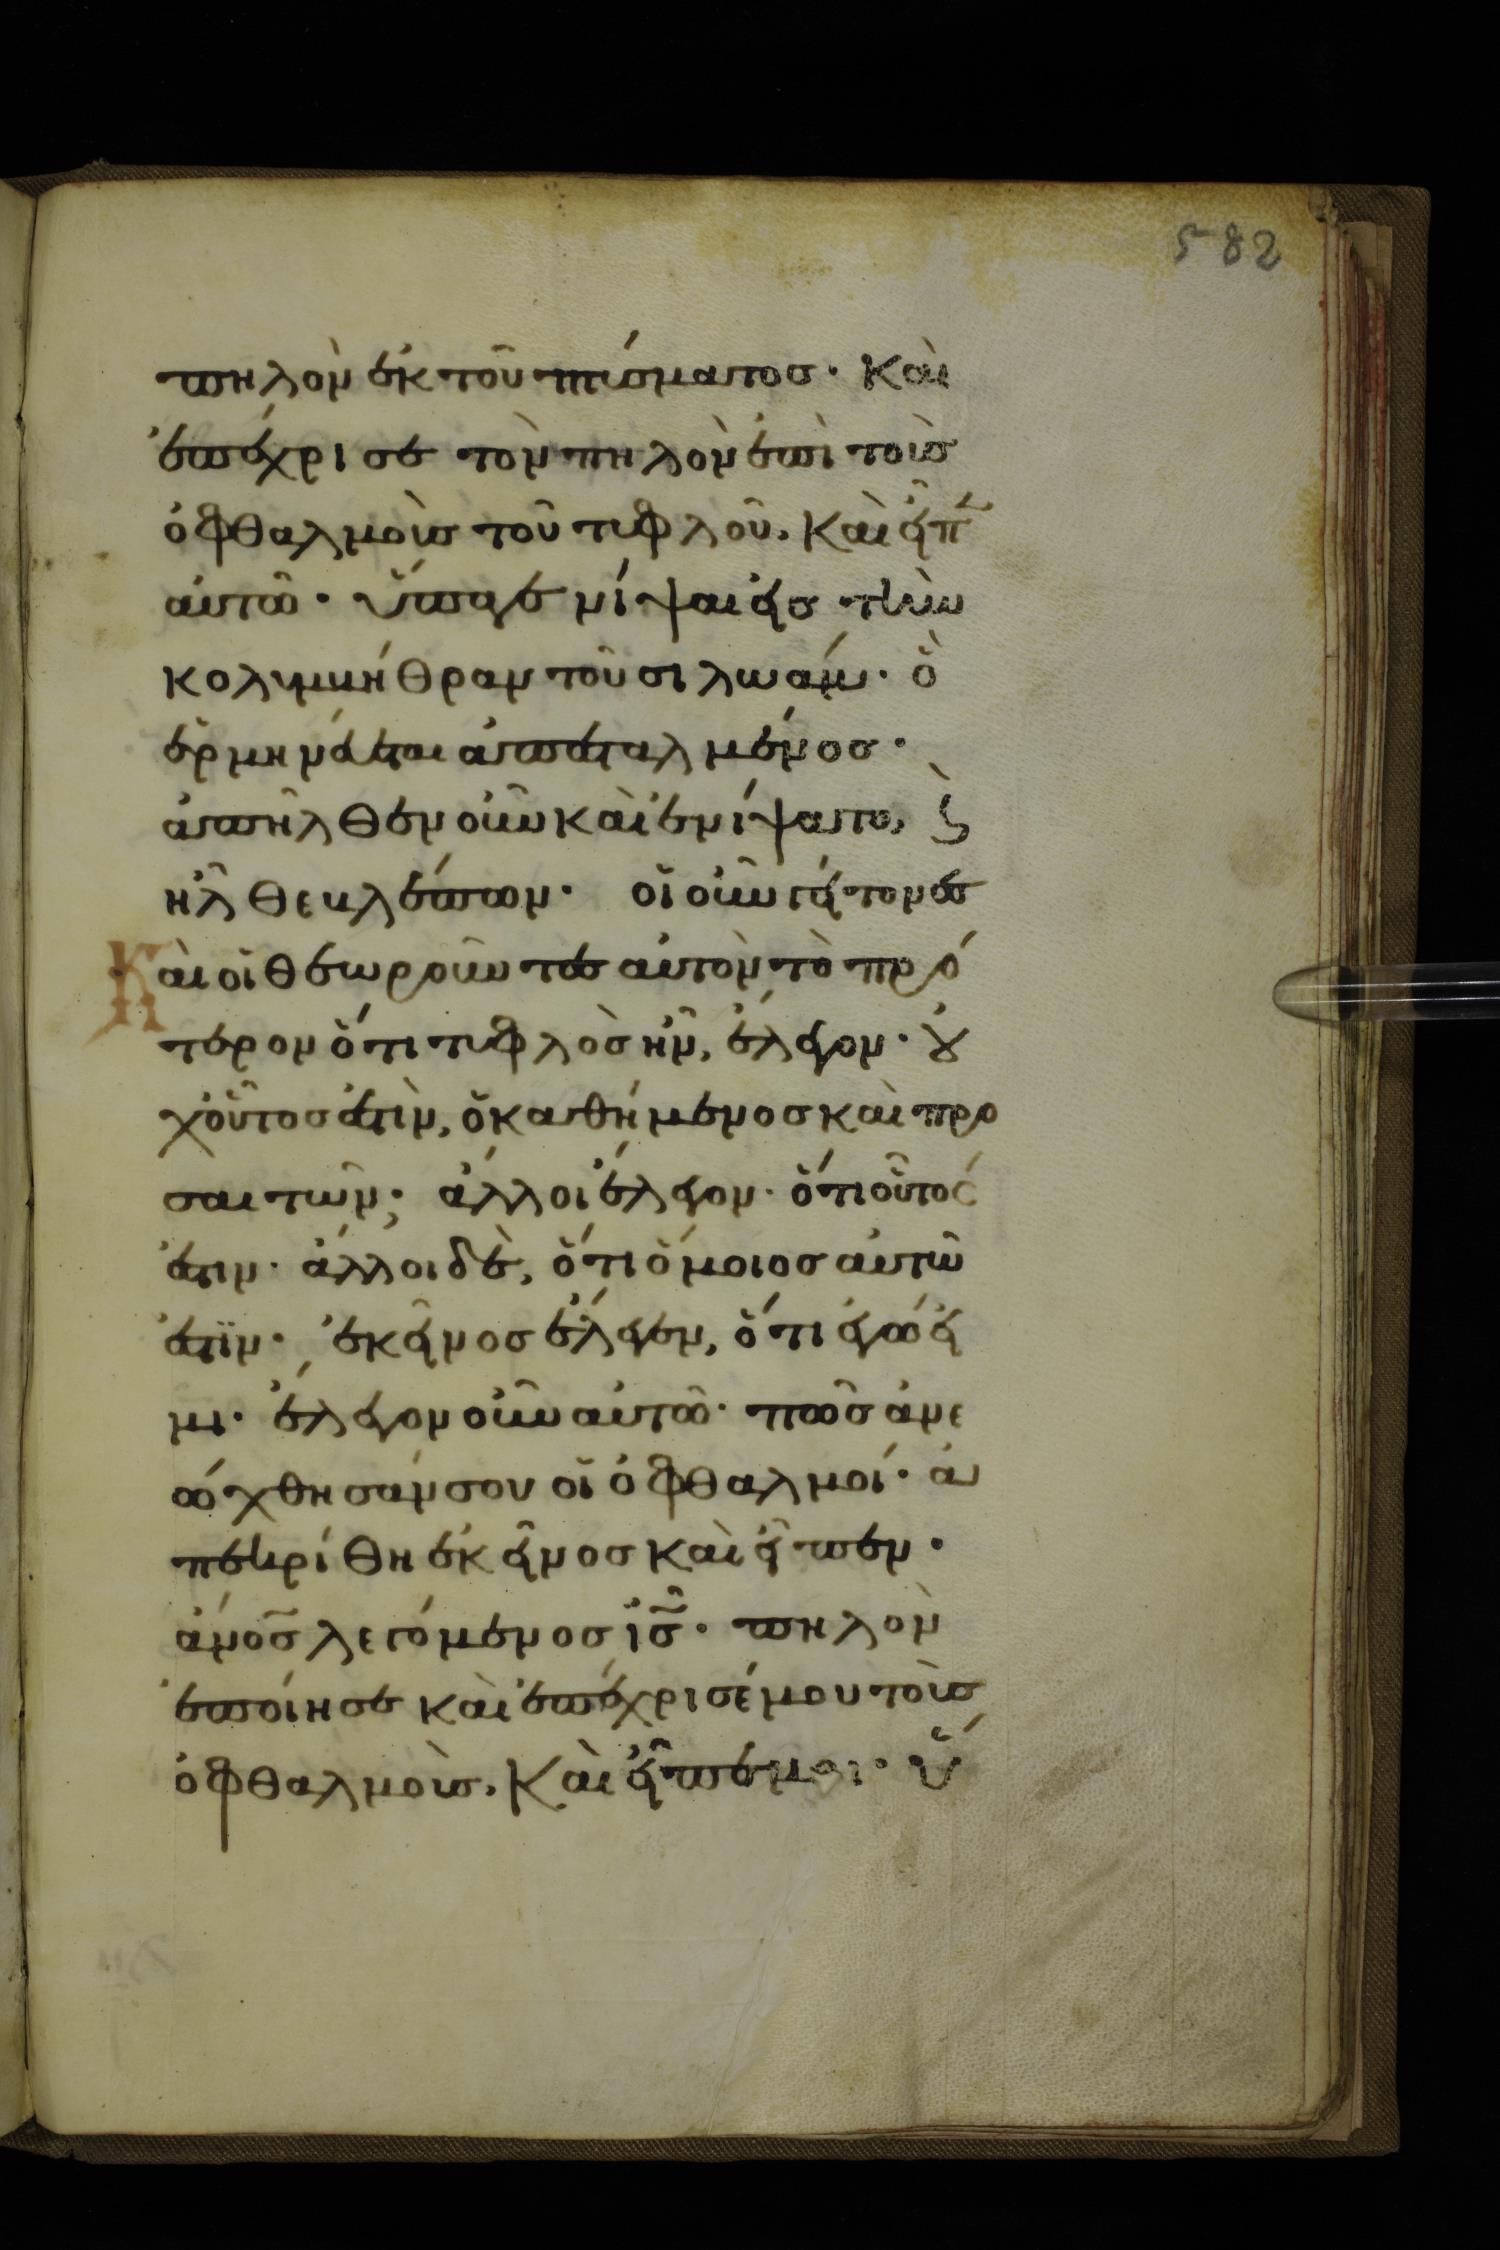 582
πηλὸν ἐκ τοῦ πτύσματος· Καὶ
ἐπέχρισε τὸν πηλὸν ἐπὶ τοὺς
ὀφθαλμοὺς τοῦ τυφλοῦ, Καὶ εἶπ̃
αὐτῶ· ὕπαγε νίψαι εἰς τὴν
κολυμβήθραν τοῦ σιλωάμ· ὃ
ἑρμηνεύεται ἀπεσταλμένος·
ἀπῆλθεν οὖν καὶ ἐνίψατο, ϗ̀
ἦλθε βλέπων· οἱ οὖν γείτονες
Καὶ οἱ θεωροῦντες αὐτὸν τὸ πρό
τερον ὅτι τυφλὸς ἦν, ἔλεγον· οὐ
χοὗτος ἐστὶν, ὁ καθήμενος καὶ προ
σαιτῶν; ἄλλοι ἔλεγον· ὅτι οὗτός
ἐστιν· ἄλλοι δὲ, ὅτι ὅμοιος αὐτῶ
ἐστϊν· ἐκεῖνος ἔλεγεν, ὅτι ἐγώ εἰ
μι· ἔλεγον οὖν αὐτῶ· πῶς ἀνε
ώχθησάν σου οἱ ὀφθαλμοί· ἀ
πεκρίθη ἐκεῖνος καὶ εἶπεν·
ἄνο̃ς λεγόμενος ἰ̃ς· πηλὸν
ἐποίησε καὶ ἐπέχρισέ μου τοὺς
ὀφθαλμοὺς, Καὶ εἶπέ μοι· ὕ